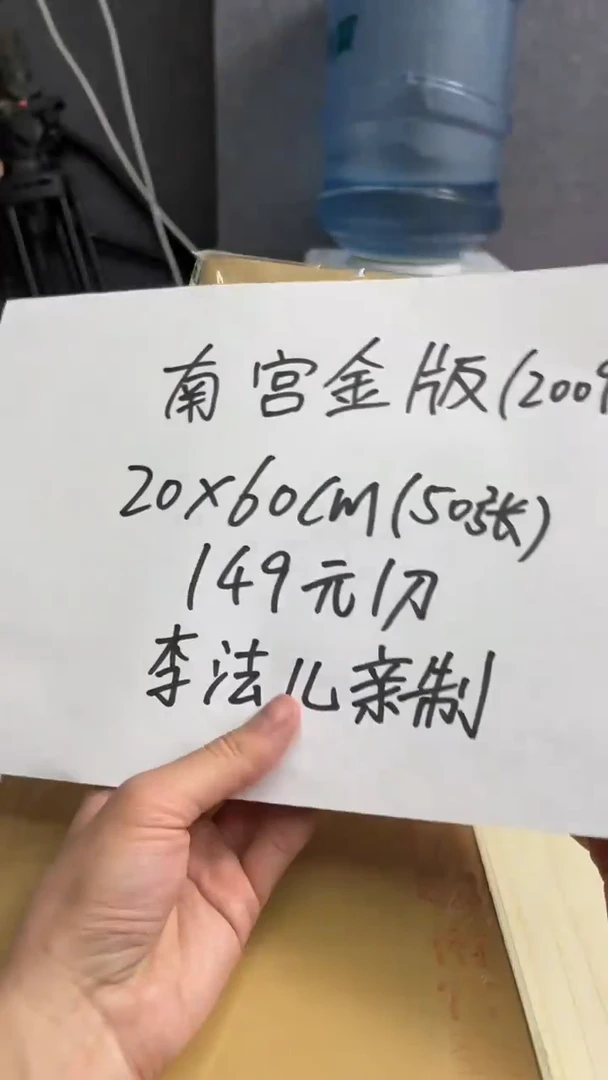 南宫金版(2009
20×60CM(50张)
149元1刀
李法儿亲制